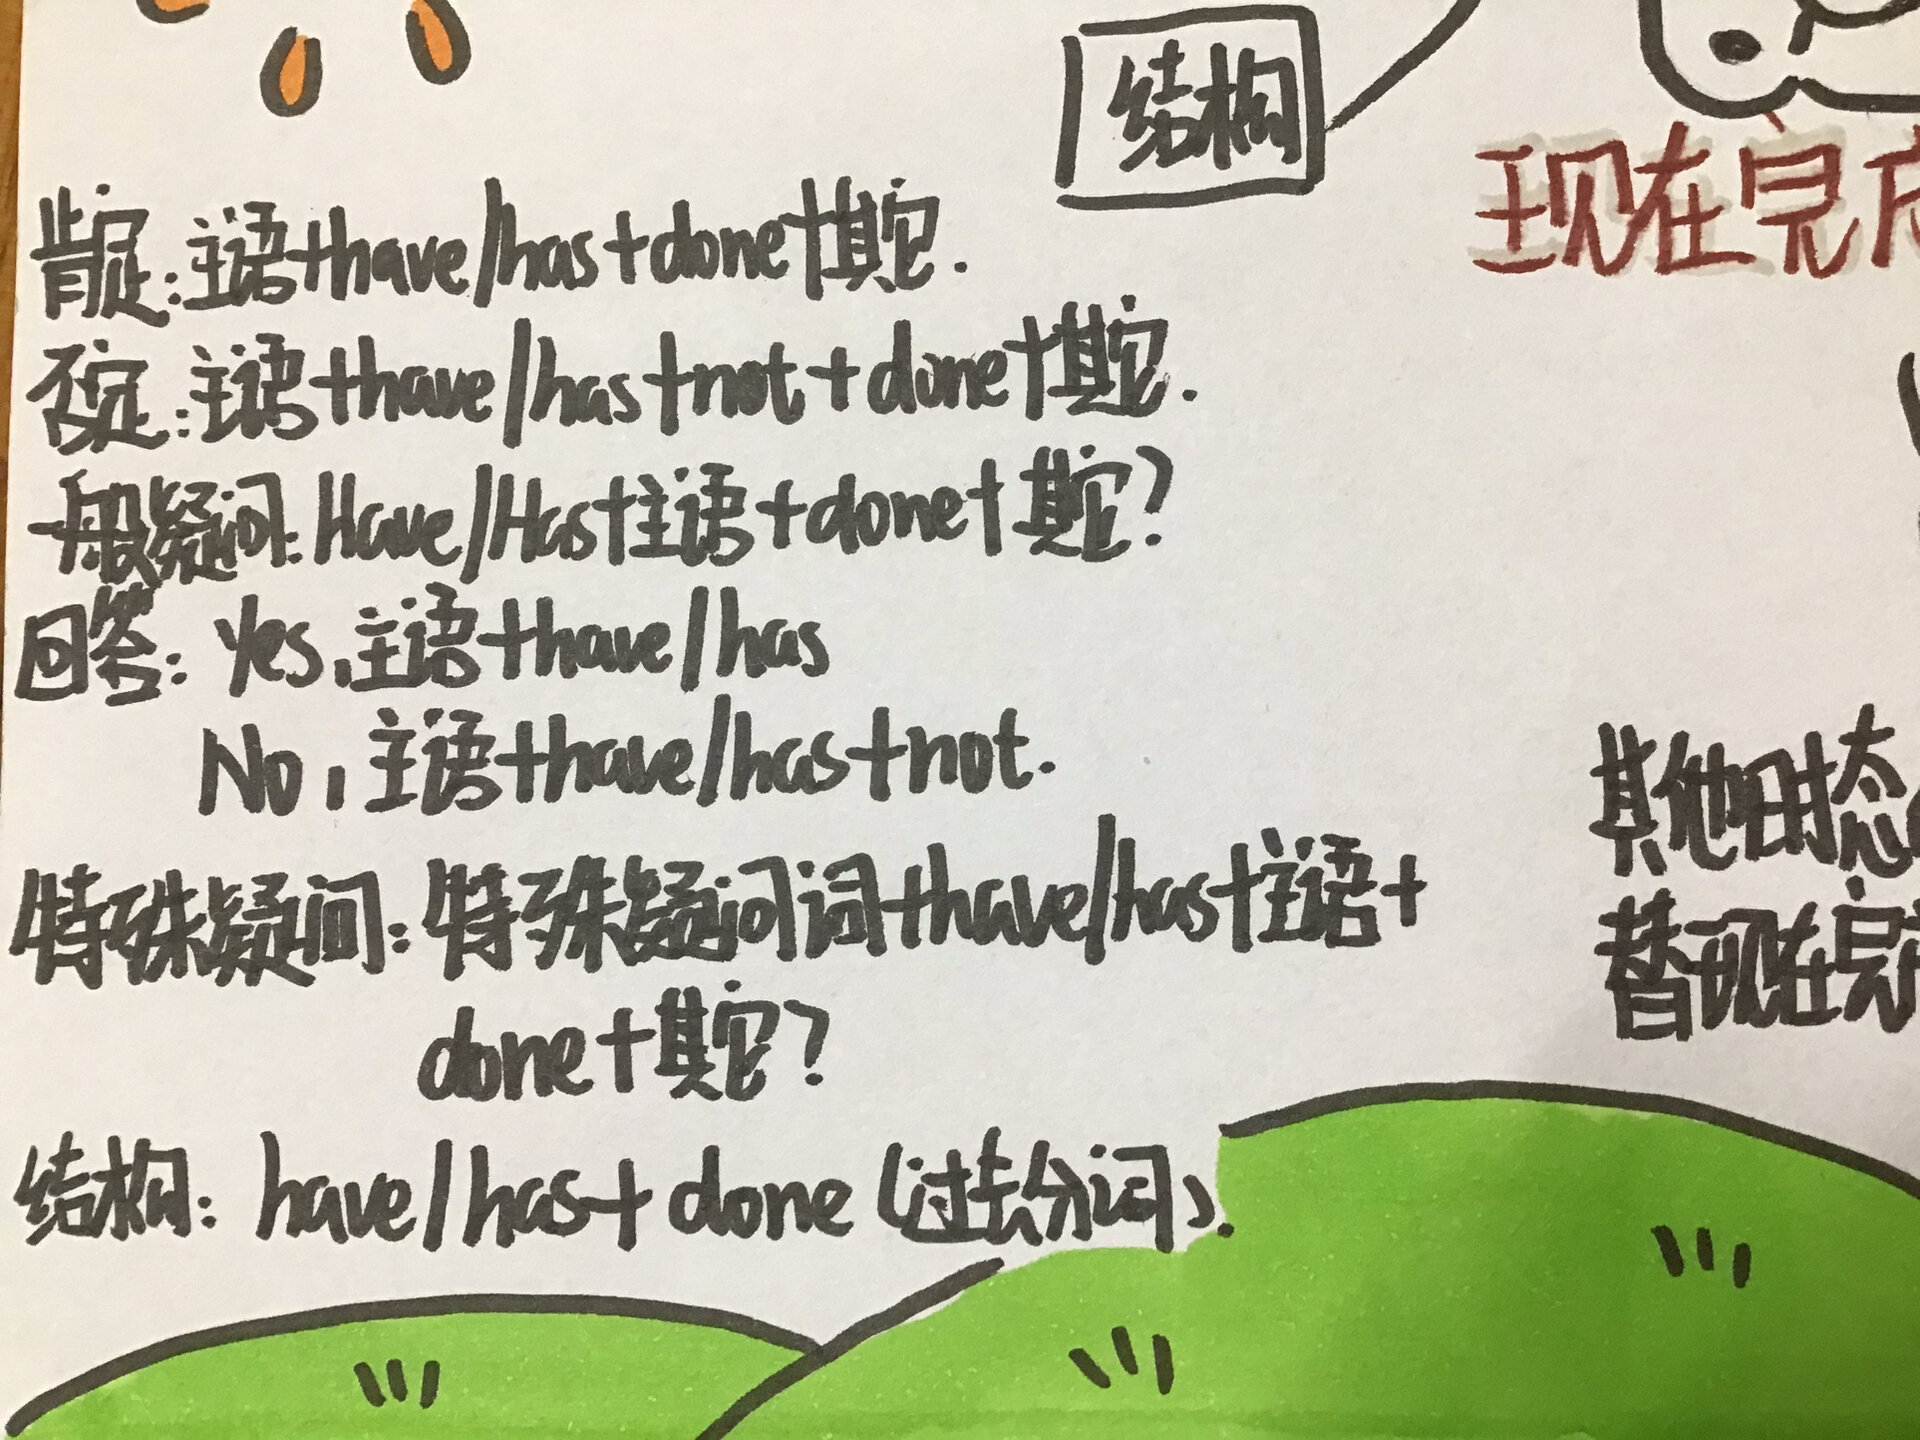 结构
现在完成
肯定:主语+have/has+done+其它.
否定:主语+have/has+not+done+其它.
一般疑问:Have/Has+主语+done+其它?
回答: Yes,主语+have/has
No,主语+have/has+not.
特殊疑问:特殊疑问词+have/has+主语+
done+其它?
结构: have/has+done(过去分词).
其他时态
替现在完